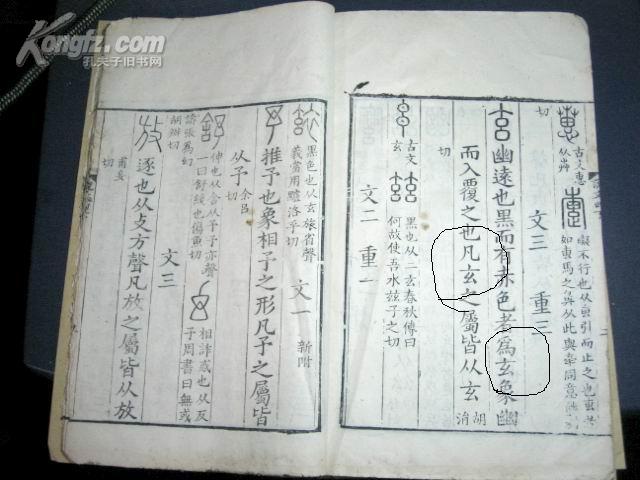 Kongfz.com
孔夫子旧书网
古文惠
从艸
礙不行也从叀引而止之也叀者
如叀馬之鼻从此與牽同意
切
文三 重三
幽遠也黑而有赤色者為玄象幽
而入覆之也凡玄之屬皆从玄 胡涓
切
古文
玄
黑也从二玄春秋傳曰
何故使吾水兹子之切
文二 重一
黑色也从玄旅省聲
義當用黸洛乎切
文一 新附
推予也象相予之形凡予之屬皆
从予 余呂
切
伸也从舍从予予亦聲
一曰舒緩也傷魚切
相詐惑也从反
予周書曰無或
譸張為幻
胡辦切
逐也从攴方聲凡放之屬皆从放
甫妄
切
文三